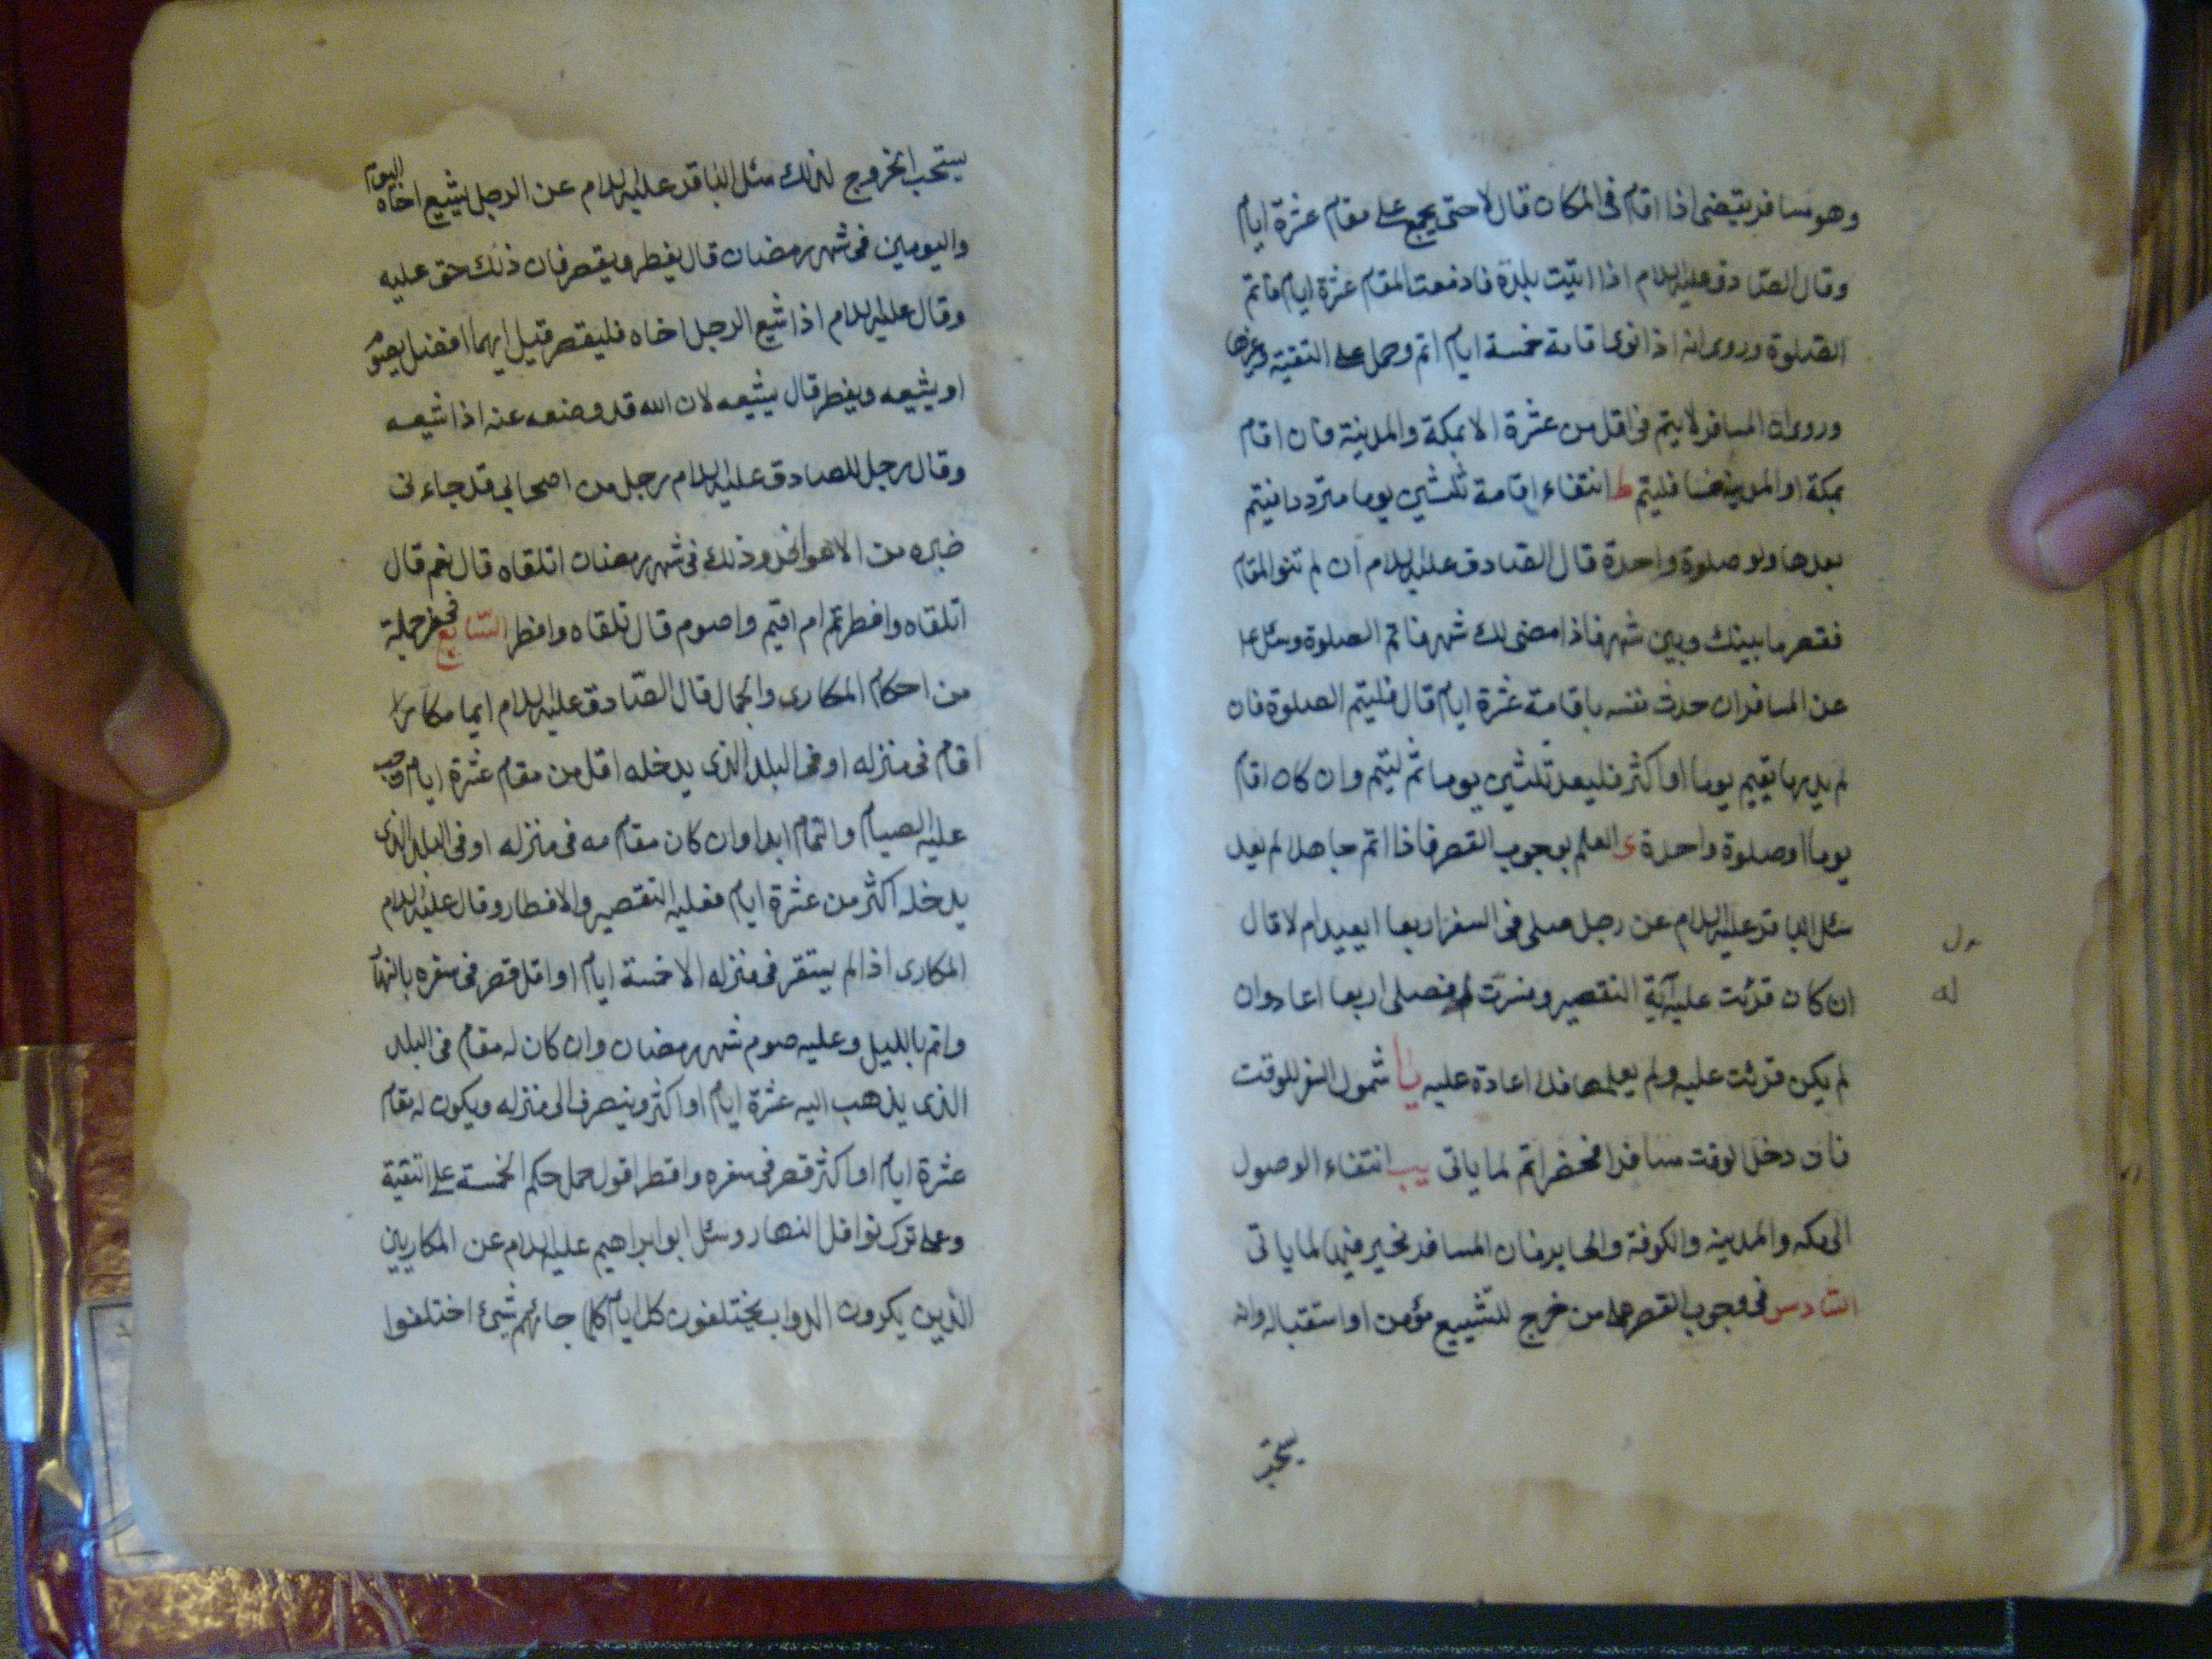 وهو مسافر يقضى اذا اقام فى المكان قال لا حتى يجمع على مقام عشرة ايام
وقال الصادق عليه السلام اذا اتيت بلدة فازمعت المقام عشرة ايام فاتم
الصلوة وروى انه اذا نوى اقامة خمسة ايام اتم وحمل على التقية
وروى ان المسافر لا يتم فى اقل من عشرة الا بمكة والمدينة فان اقام
بمكة او المدينة خمسا فليتم ط انتفاء اقامة ثلثين يوما مترددا فيتم
بعدها ولو صلوة واحدة قال الصادق عليه السلام ان لم تنو المقام
فقصر ما بينك وبين شهر فاذا مضى لك شهر فاتم الصلوة وسئل ع
عن المسافر ان حدث نفسه باقامة عشرة ايام قال فليتم الصلوة فان
لم يدر ما يقيم يوما او اكثر فليعد ثلثين يوما ثم ليتم وان كان اقام
يوما او صلوة واحدة ى العلم بوجوب القصر فاذا اتم جاهلا لم يعد
سئل الباقر عليه السلام عن رجل صلى فى السفر اربعا ايعيد ام لا قال
ان كان قرئت عليه آية التقصير وفسرت له فصلى اربعا اعاد وان
لم يكن قرئت عليه ولم يعلمها فلا اعادة عليه يا شمول السفر للوقت
فان دخل الوقت مسافرا فحضر اتم لما ياتى يب انتفاء الوصول
الى مكه والمدينه والكوفة والحاير فان المسافر تخير فيها لما ياتى
السادس فى وجوب القصر على من خرج لتشييع مؤمن او استقباله وانه
يستحب
له
يستحب الخروج لذلك سئل الباقر عليه السلام عن الرجل يشيع اخاه اليوم
واليومين فى شهر رمضان قال يفطر ويقصر فان ذلك حق عليه
وقال عليه السلام اذا شيع الرجل اخاه فليقصر قيل ايهما افضل يصوم
او يشيعه ويفطر قال يشيعه لان الله قد وضعه عنه اذا شيعه
وقال رجل للصادق عليه السلام رجل من اصحابى قد جاءنى
خبره من الاعوص وذلك فى شهر رمضان اتلقاه قال نعم قال
اتلقاه وافطر ثم ام اقيم واصوم قال تلقاه وافطر السابع فى جملة
من احكام المكارى والجمال قال الصادق عليه السلام ايما مكار
اقام فى منزله او فى البلد الذى يدخله اقل من مقام عشرة ايام وجب
عليه الصيام والتمام ابدا وان كان مقامه فى منزله او فى البلد الذى
يدخله اكثر من عشرة ايام فعليه التقصير والافطار وقال عليه السلام
المكارى اذا لم يستقر فى منزله الا خمسة ايام او اقل قصر فى سفره بالنهار
واتم بالليل وعليه صوم شهر رمضان وان كان له مقام فى البلد
الذى يذهب اليه عشرة ايام او اكثر وينصرف الى منزله ويكون له مقام
عشرة ايام او اكثر قصر فى سفره وافطر اقول حمل حكم الخمسة على التقية
وعلى ترك نوافل النهار وسئل ابو ابراهيم عليه السلام عن المكاريين
الذين يكرون الدواب يختلفون كل ايام كلما جائهم شىء اختلفوا